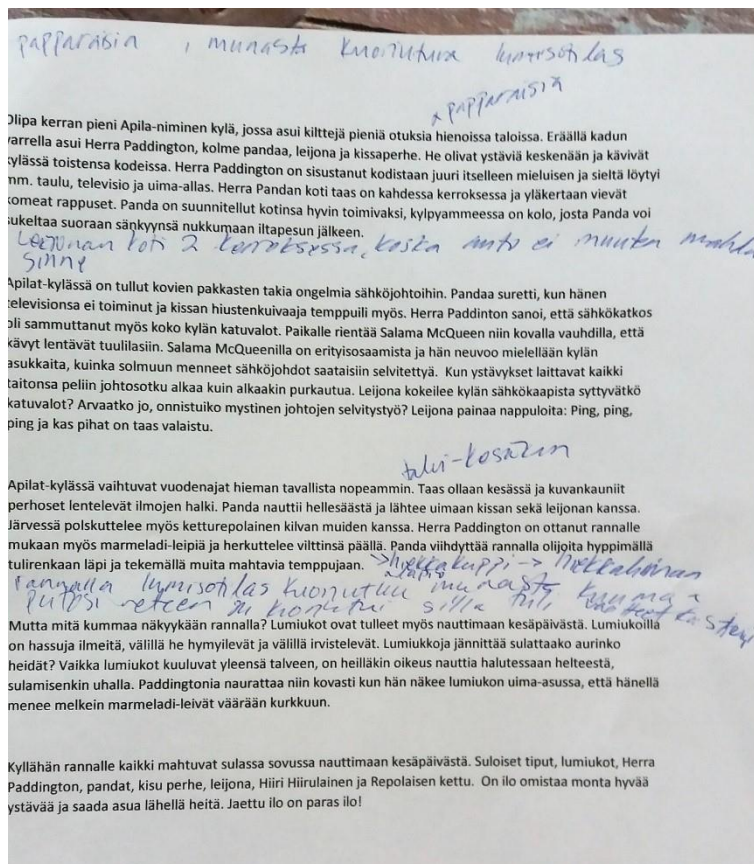 papparaisia, munasta kuoriutuva lumisotilas
papparaisia
Olipa kerran pieni Apila-niminen kylä, jossa asui kilttejä pieniä otuksia hienoissa taloissa. Eräällä kadun
varrella asui Herra Paddington, kolme pandaa, leijona ja kissaperhe. He olivat ystäviä keskenään ja kävivät
kylässä toistensa kodeissa. Herra Paddington on sisustanut kodistaan juuri itselleen mieluisen ja sieltä löytyi
mm. taulu, televisio ja uima-allas. Herra Pandan koti taas on kahdessa kerroksessa ja yläkertaan vievät
komeat rappuset. Panda on suunnitellut kotinsa hyvin toimivaksi, kylpyammeessa on kolo, josta Panda voi
sukeltaa suoraan sänkyynsä nukkumaan iltapesun jälkeen.
Leijonan koti 2 kerroksessa, koska auto ei muuten mahdu
sinne
Apilat-kylässä on tullut kovien pakkasten takia ongelmia sähköjohtoihin. Pandaa suretti, kun hänen
televisionsa ei toiminut ja kissan hiustenkuivaaja temppuili myös. Herra Paddinton sanoi, että sähkökatkos
oli sammuttanut myös koko kylän katuvalot. Paikalle rientää Salama McQueen niin kovalla vauhdilla, että
kävyt lentävät tuulilasiin. Salama McQueenilla on erityisosaamista ja hän neuvoo mielellään kylän
asukkaita, kuinka solmuun menneet sähköjohdot saataisiin selvitettyä. Kun ystävykset laittavat kaikki
taitonsa peliin johtosotku alkaa kuin alkaakin purkautua. Leijona kokeilee kylän sähkökaapista syttyvätkö
katuvalot? Arvaatko jo, onnistuiko mystinen johtojen selvitystyö? Leijona painaa nappuloita: Ping, ping,
ping ja kas pihat on taas valaistu.
talvi-kesään
Apilat-kylässä vaihtuvat vuodenajat hieman tavallista nopeammin. Taas ollaan kesässä ja kuvankauniit
perhoset lentelevät ilmojen halki. Panda nauttii hellesäästä ja lähtee uimaan kissan sekä leijonan kanssa.
Järvessä polskuttelee myös ketturepolainen kilvan muiden kanssa. Herra Paddington on ottanut rannalle
mukaan myös marmeladi-leipiä ja herkuttelee vilttinsä päällä. Panda viihdyttää rannalla olijoita hyppimällä
tulirenkaan läpi ja tekemällä muita mahtavia temppujaan. → hiekkakuppi → hiekkahoinan
rannalla lumisotilas kuoriutuu munasta
putosi veteen
Mutta mitä kummaa näkyykään rannalla? Lumiukot ovat tulleet myös nauttimaan kesäpäivästä. Lumiukoilla
on hassuja ilmeitä, välillä he hymyilevät ja välillä irvistelevät. Lumiukkoja jännittää sulattaako aurinko
heidät? Vaikka lumiukot kuuluvat yleensä talveen, on heilläkin oikeus nauttia halutessaan helteestä,
sulamisenkin uhalla. Paddingtonia naurattaa niin kovasti kun hän näkee lumiukon uima-asussa, että hänellä
menee melkein marmeladi-leivät väärään kurkkuun.
Kyllähän rannalle kaikki mahtuvat sulassa sovussa nauttimaan kesäpäivästä. Suloiset tiput, lumiukot, Herra
Paddington, pandat, kisu perhe, leijona, Hiiri Hiirulainen ja Repolaisen kettu. On ilo omistaa monta hyvää
ystävää ja saada asua lähellä heitä. Jaettu ilo on paras ilo!